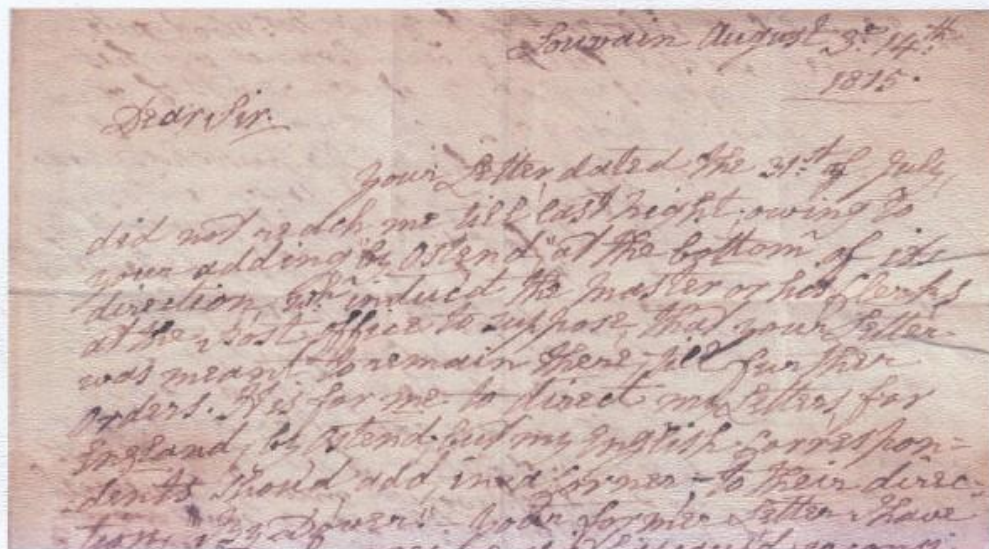 Louvain August 3d 14th
1815.
Dear Sir.
your Letter dated the 31st of July,
did not reach me till last night owing to
your adding "by Ostend" at the bottom of its
direction, wch induced the master or his Clerks
at the Post office to suppose, that your Letter
was meant to remain there till further
orders. It is for me to direct my Letters for
England, by Ostend, but my English Correspon-
dents should add, in a Corner - to their direc-
tion your former Letter I have